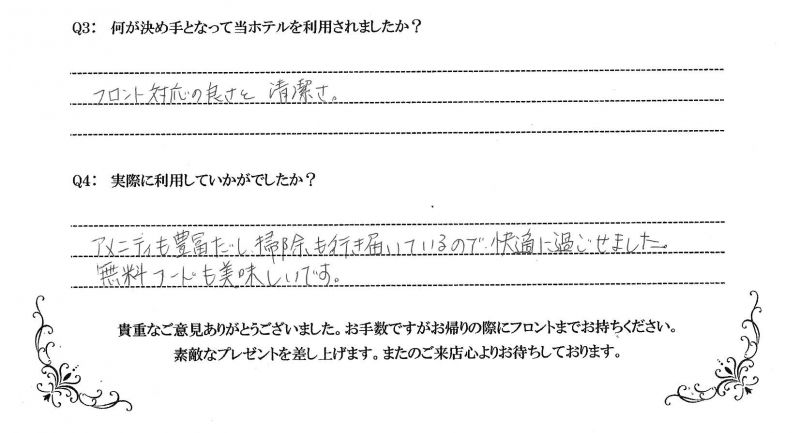 Q3： 何が決め手となって当ホテルを利用されましたか？
フロント対応の良さと 清潔さ。
Q4： 実際に利用していかがでしたか？
アメニティも豊富だし、掃除も行き届いているので、快適に過ごせました。
無料フードも美味しいです。
貴重なご意見ありがとうございました。お手数ですがお帰りの際にフロントまでお持ちください。
素敵なプレゼントを差し上げます。またのご来店心よりお待ちしております。